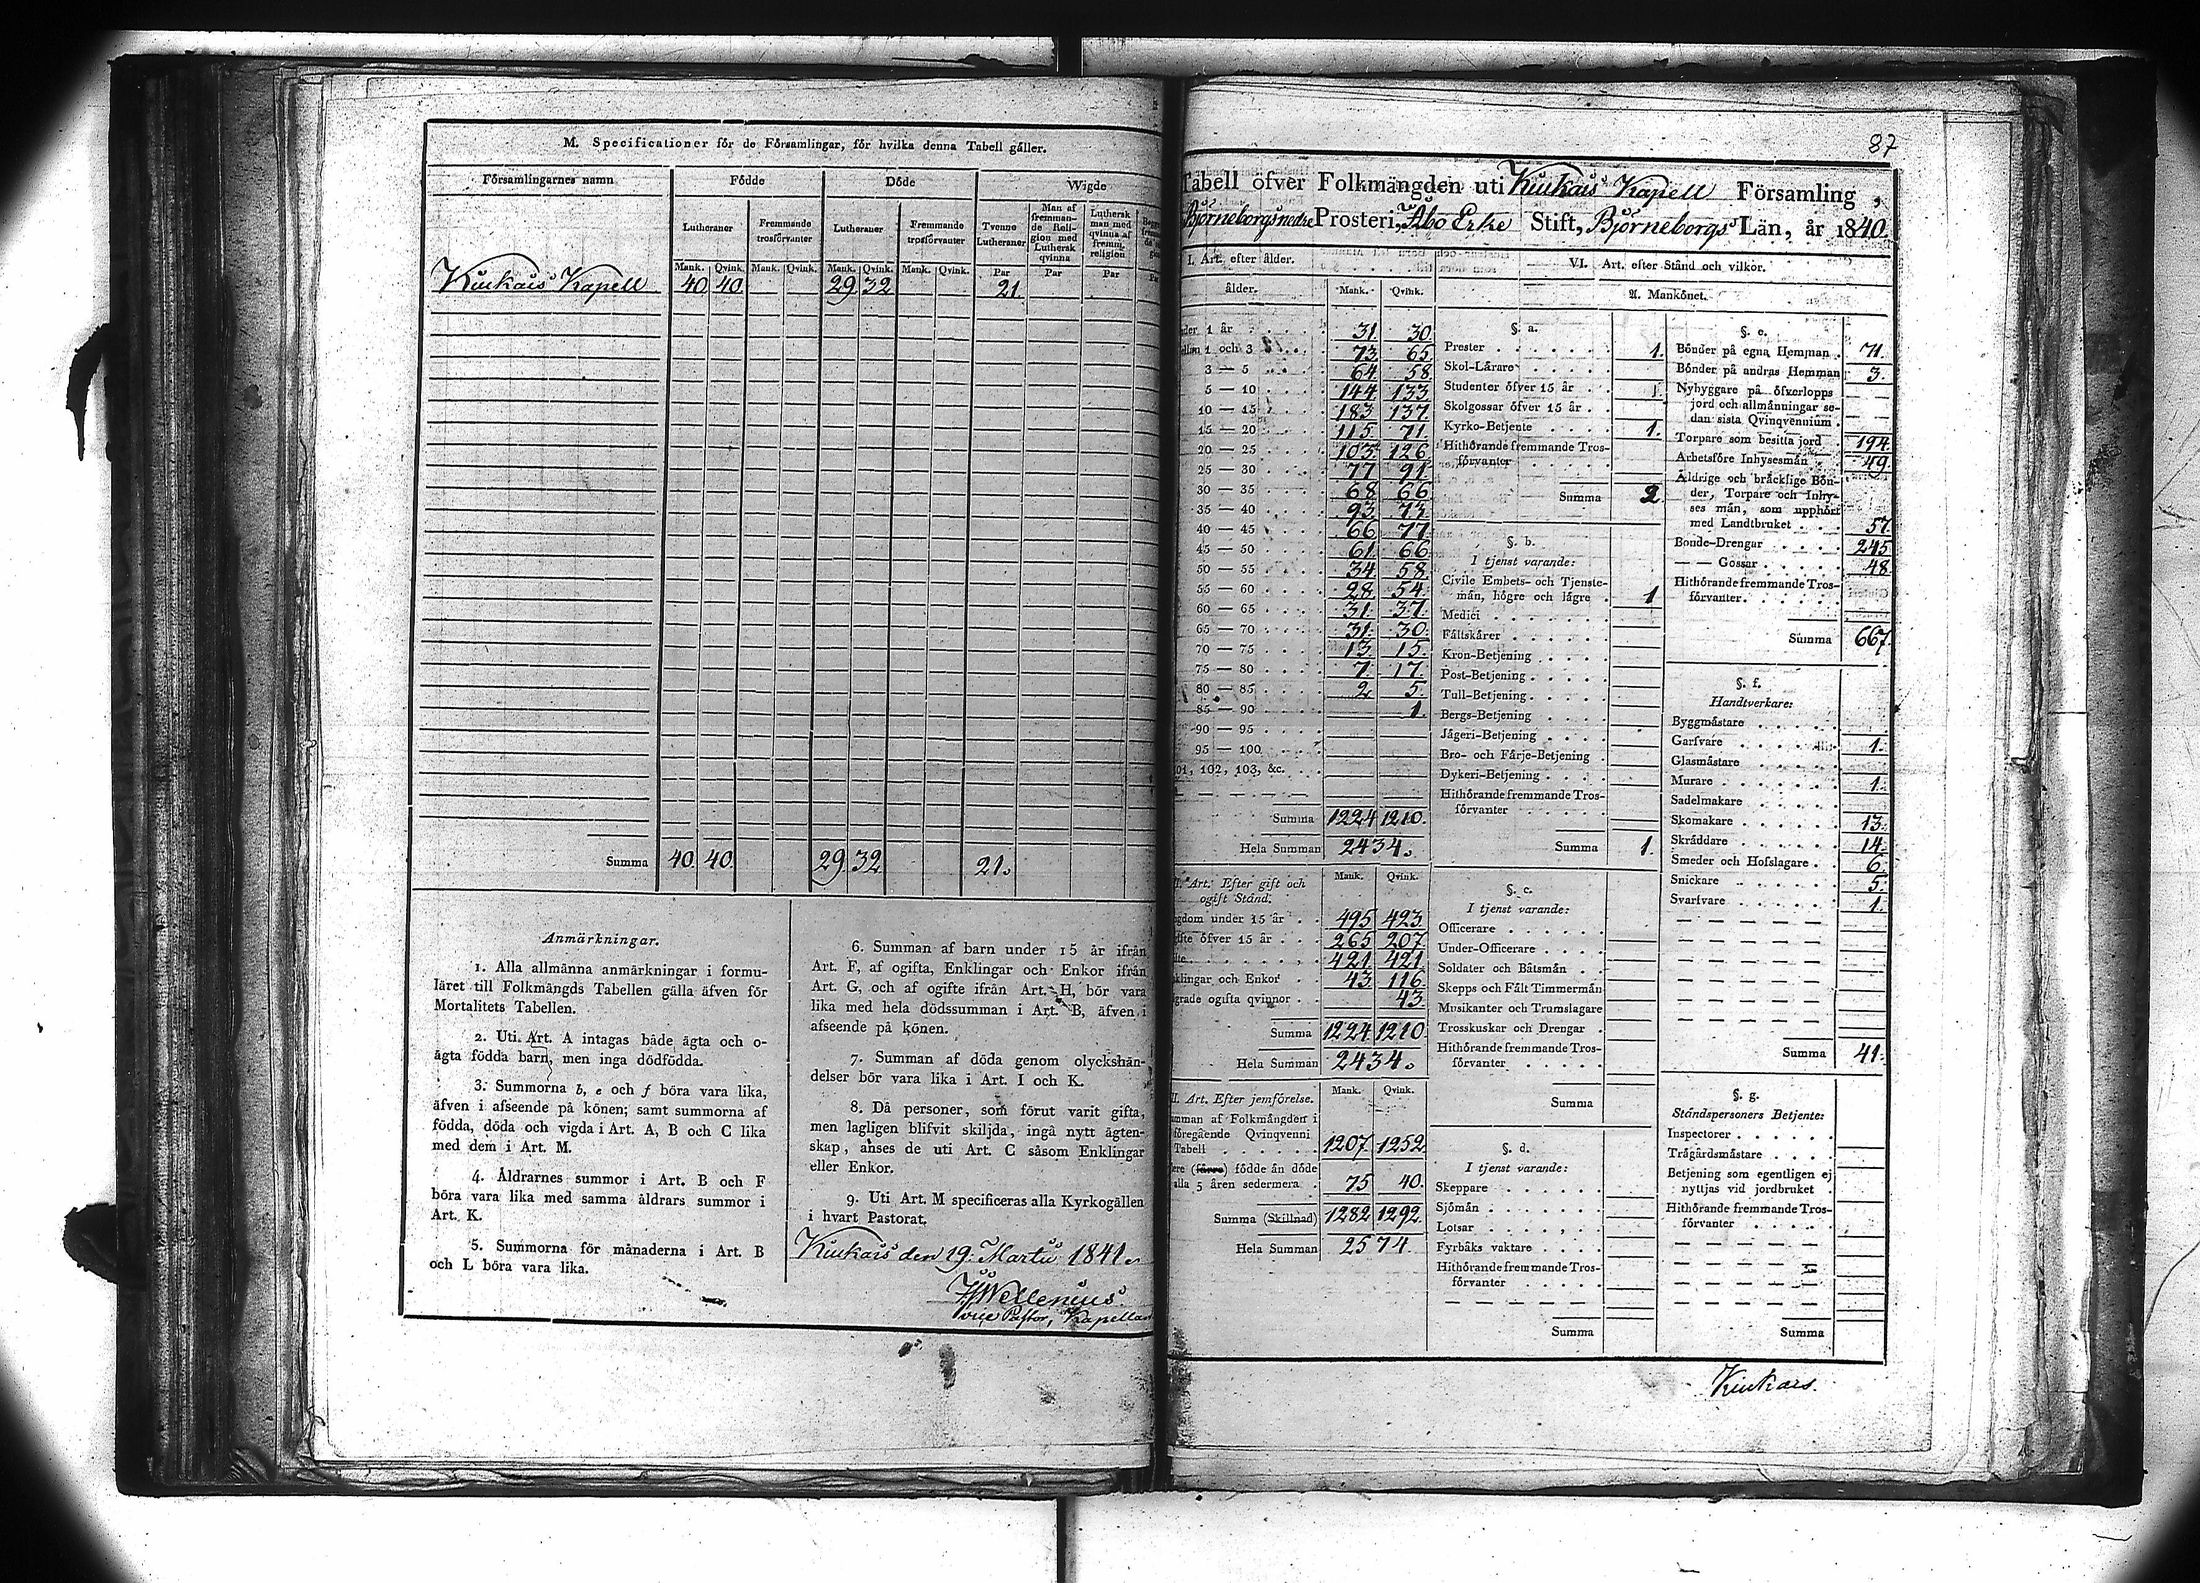 M. Specificationer för de Församlingar, för hvilka denna Tabell gäller.
Församlingarnes namn Födde Döde Wigde
Lutheraner Fremmande trosförvanter Lutheraner Fremmande trosförvanter Tvenne Lutheraner Man af fremmande Religion med Luthersk qvinna Luthersk man med qvinna af fremm. religion
Mank. Qvink. Mank. Qvink. Mank. Qvink. Mank. Qvink. Par Par Par
Kiukais Kapell 40 40 29 32 21.
Summa 40. 40. 29 32 21.
Anmärkningar.
1. Alla allmänna anmärkningar i formu-
läret till Folkmängds Tabellen gälla äfven för
Mortalitets Tabellen.
2. Uti Art. A intagas både ägta och o-
ägta födda barn, men inga dödfödda.
3. Summorna b, e och f böra vara lika,
äfven i afseende på könen; samt summorna af
födda, döda och vigda i Art. A, B och C lika
med dem i Art. M.
4. Åldrarnes summor i Art. B och F
böra vara lika med samma åldrars summor i
Art. K.
5. Summorna för månaderna i Art. B
och L böra vara lika.
6. Summan af barn under 15 år ifrån
Art. F, af ogifta, Enklingar och Enkor ifrån
Art. G, och af ogifte ifrån Art. H, bör vara
lika med hela dödssumman i Art. B, äfven i
afseende på könen.
7. Summan af döda genom olyckshän-
delser bör vara lika i Art. I och K.
8. Då personer, som förut varit gifta,
men lagligen blifvit skiljda, ingå nytt ägten-
skap, anses de uti Art. C såsom Enklingar
eller Enkor.
9. Uti Art. M specificeras alla Kyrkogällen
i hvart Pastorat.
Kiukais den 19. Martii 1841.
Wellenius
vice Pastor, Kapellan
87
Tabell öfver Folkmängden uti Kiukais Kapell Församling,
Björneborgs nedre Prosteri, Åbo Erke Stift, Björneborgs Län, år 1840.
I. Art. efter ålder.
ålder. Mank. Qvink.
under 1 år 31. 30.
mellan 1 och 3 73. 65.
3 — 5 64 58
5 — 10 144 133
10 — 15 183 137.
15 — 20 115 71
20 — 25 103 126
25 — 30 77 91.
30 — 35 68 66
35 — 40 93 73
40 — 45 66 77
45 — 50 61. 66
50 — 55 34 58.
55 — 60 28 54.
60 — 65 31. 37.
65 — 70 31. 30.
70 — 75 13. 15.
75 — 80 7. 17.
80 — 85 2 5.
85 — 90 1.
90 — 95
95 — 100
101, 102, 103, &c.
Summa 1224 1210.
Hela Summan 2434.
II. Art. Efter gift och
ogift Stånd. Mank. Qvink.
Ungdom under 15 år 495 423
Ogifte öfver 15 år 265 207
Gifte 421 421
Enklingar och Enkor 43. 116
grade ogifta qvinnor 43.
Summa 1224 1210
Hela Summan 2434.
III. Art. Efter jemförelse. Mank. Qvink.
Summan af Folkmängden i
föregående Qvinqvenni
Tabell 1207 1252
flere (färre) födde än döde
alla 5 åren sedermera 75 40.
Summa (Skillnad) 1282 1292
Hela Summan 2574.
VI. Art. efter Stånd och vilkor.
A. Mankönet.
§. a.
Prester 1.
Skol-Lärare
Studenter öfver 15 år
Skolgossar öfver 15 år
Kyrko-Betjente 1.
Hithörande fremmande Tros-
förvanter
Summa 2
§. b.
I tjenst varande:
Civile Embets- och Tjenste-
män, högre och lägre 1
Medici
Fältskärer
Kron-Betjening
Post-Betjening
Tull-Betjening
Bergs-Betjening
Jägeri-Betjening
Bro- och Färje-Betjening
Dykeri-Betjening
Hithörande fremmande Tros-
förvanter
Summa 1.
§. c.
I tjenst varande:
Officerare
Under-Officerare
Soldater och Båtsmän
Skepps och Fält Timmermän
Musikanter och Trumslagare
Trosskuskar och Drengar
Hithörande fremmande Tros-
förvanter
Summa
§. d.
I tjenst varande:
Skeppare
Sjömän
Lotsar
Fyrbåks vaktare
Hithörande fremmande Tros-
förvanter
Summa
§. e.
Bönder på egna Hemman 71.
Bönder på andras Hemman 3.
Nybyggare på öfverlopps
jord och allmänningar se-
dan sista Qvinqvennium
Torpare som besitta jord 194.
Arbetsföre Inhysesmän 49.
Åldrige och bräcklige Bön-
der, Torpare och Inhy-
ses män, som upphört
med Landtbruket 57.
Bonde-Drengar 245
— — Gossar 48
Hithörande fremmande Tros-
förvanter
Summa 667.
§. f.
Handtverkare:
Byggmästare
Garfvare 1.
Glasmästare
Murare 1.
Sadelmakare
Skomakare 13.
Skräddare 14.
Smeder och Hofslagare 6.
Snickare 5.
Svarfvare 1.
Summa 41.
§. g.
Ståndspersoners Betjente:
Inspectorer
Trägårdsmästare
Betjening som egentligen ej
nyttjas vid jordbruket
Hithörande fremmande Tros-
förvanter
Summa
Kiukais.